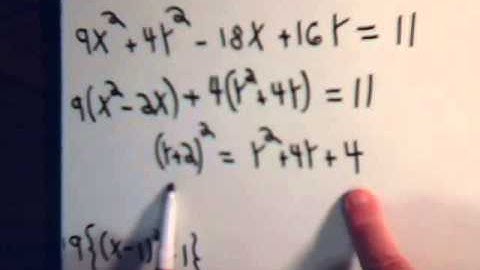 9x² + 4Y² - 18x + 16Y = 11
9(x² - 2x) + 4(Y² + 4Y) = 11
(Y+2)² = Y² + 4Y + 4
9{(x-1)² - 1}